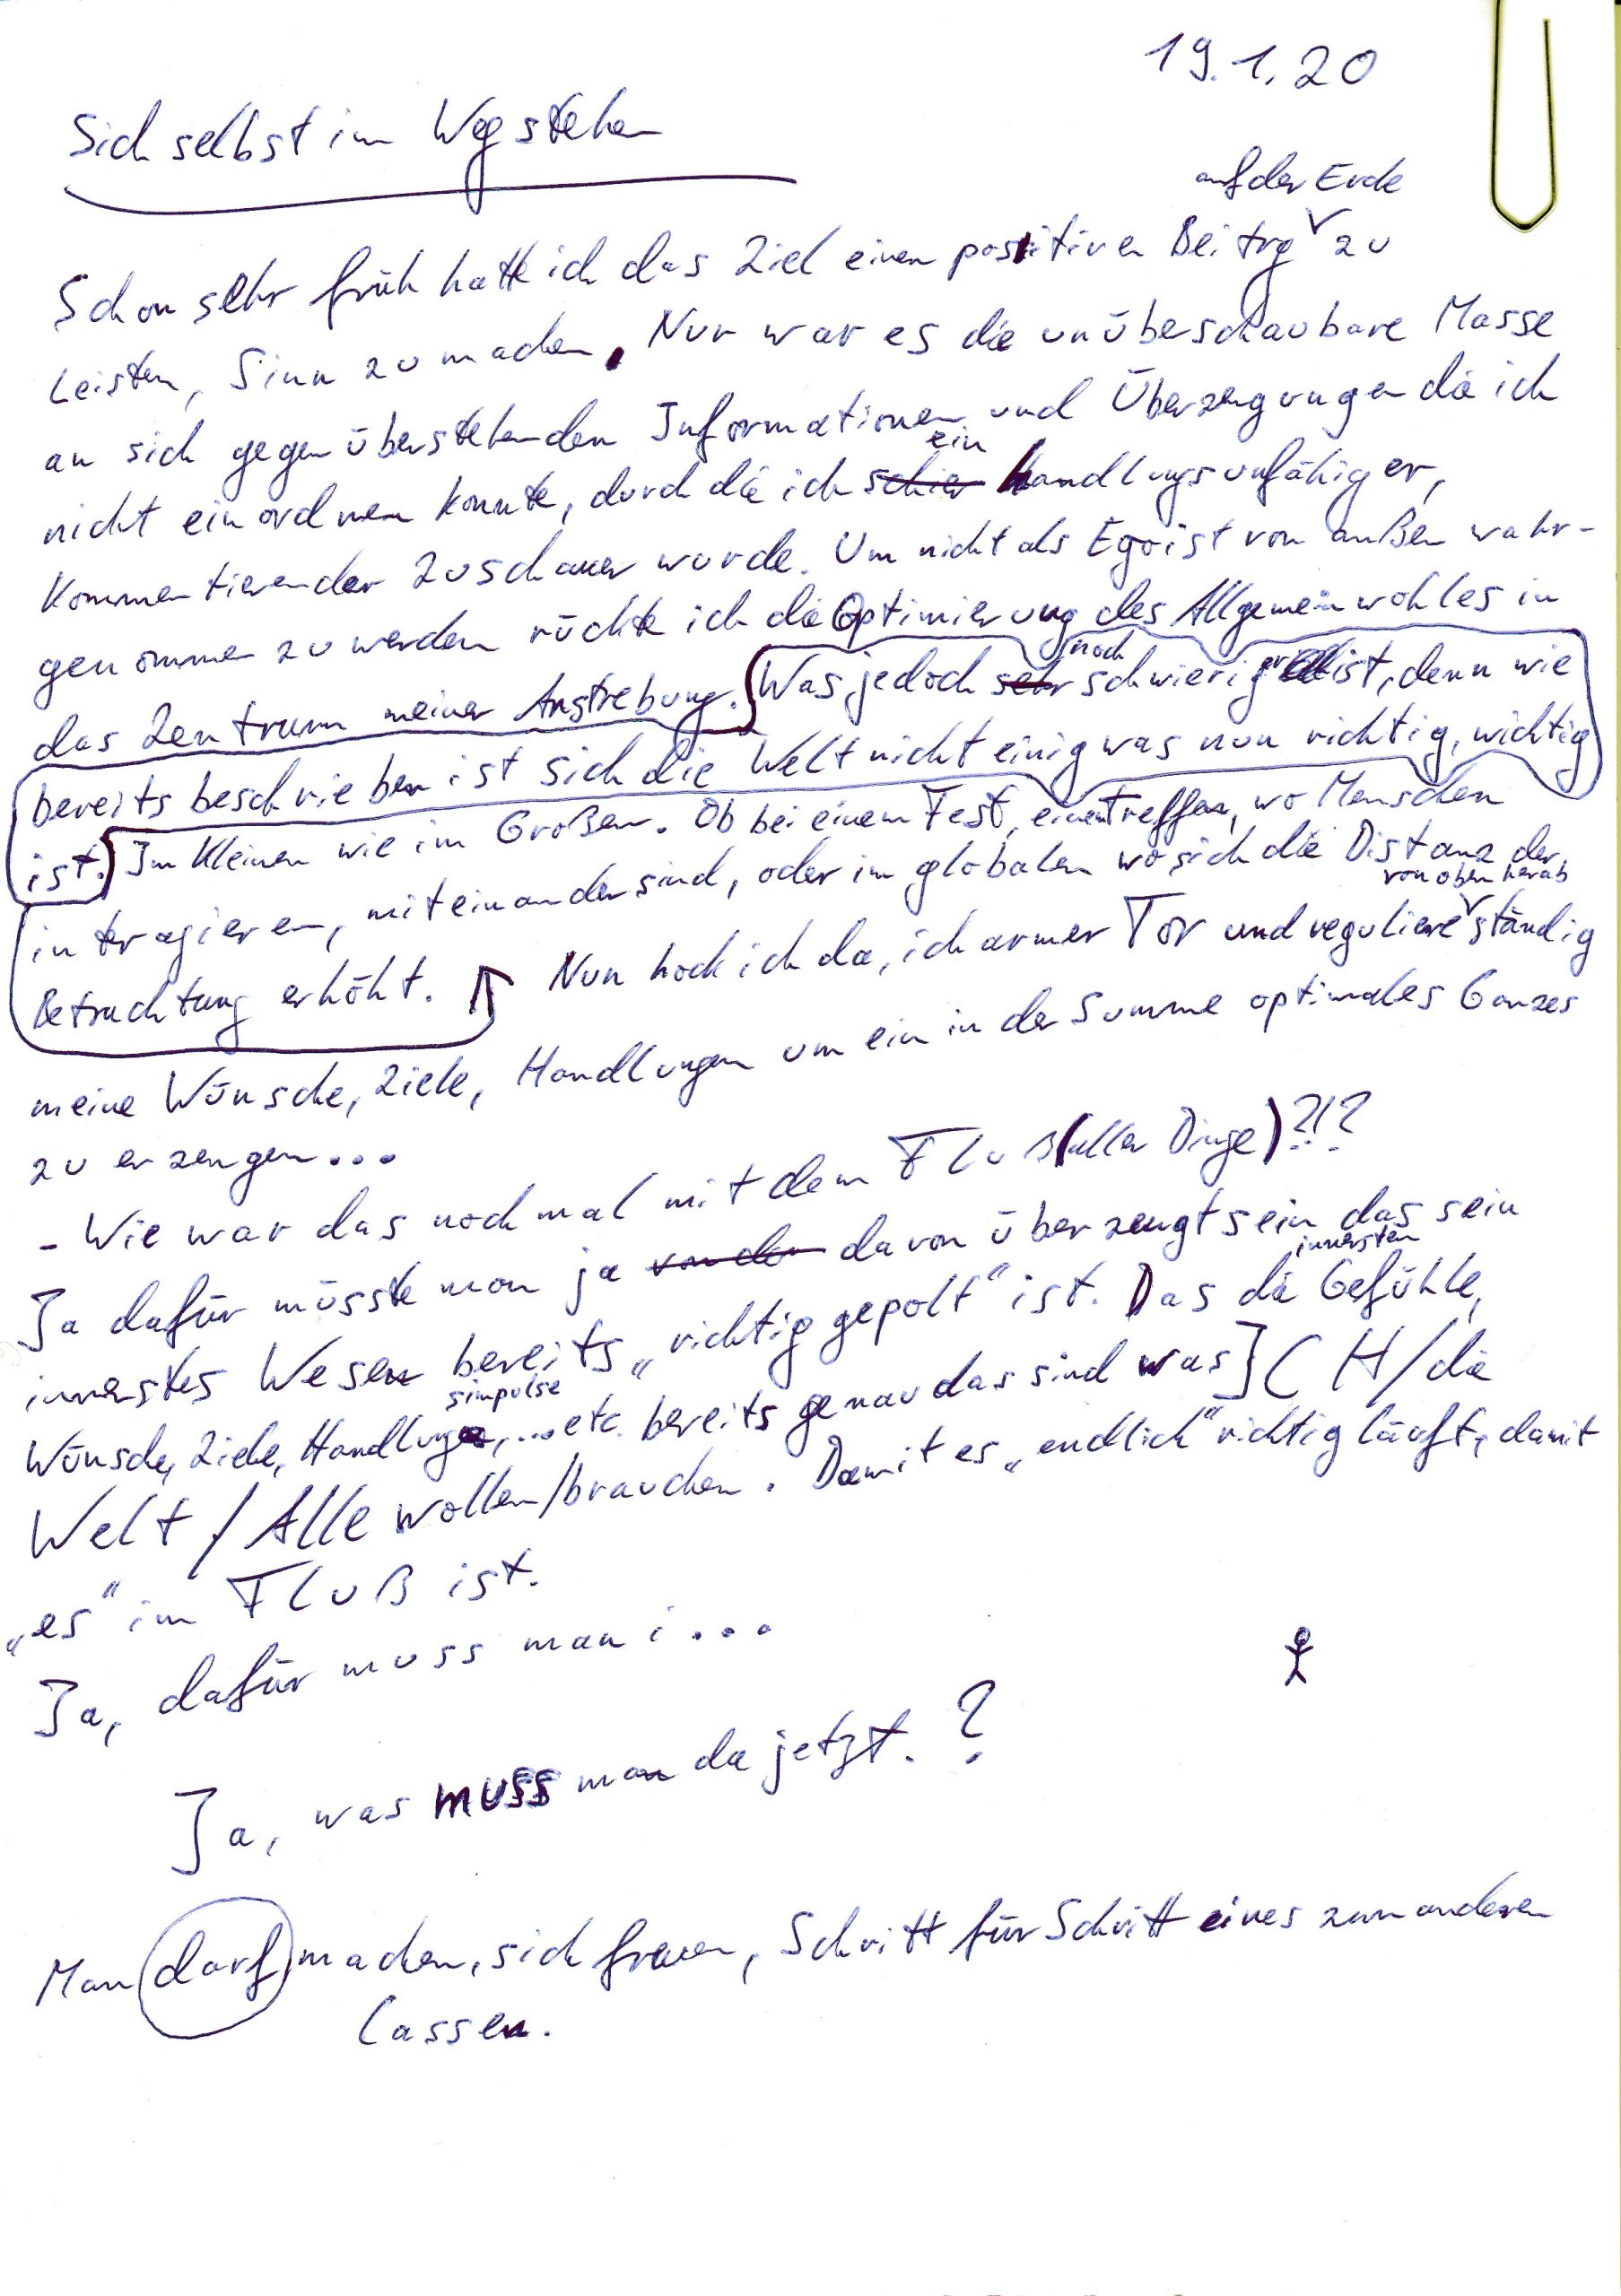 19.1.20
Sich selbst im Weg stehen
auf der Erde
Schon sehr früh hatte ich das Ziel einen positiven Beitrg zu
leisten, Sinn zu machen. Nur war es die unüberschaubare Masse
an sich gegenüberstehenden Informationen und Überzeugungen die ich
ein
nicht einordnen konnte, durch die ich schier handlungsunfähiger,
kommentierender Zuschauer wurde. Um nicht als Egoist von außen wahr-
genommen zu werden rückte ich die Optimierung des Allgemeinwohles in
noch
das Zentrum meiner Anstrebung. Was jedoch sehr schwieriger ist, denn wie
bereits beschrieben ist sich die Welt nicht einig was nun richtig, wichtig
ist. Im Kleinen wie im Großen. Ob bei einem Fest, einem Treffen, wo Menschen
interagieren, miteinander sind, oder im globalen wo sich die Distanz der
von oben herab
Betrachtung erhöht. Nun hock ich da, ich armer Tor und reguliere ständig
meine Wünsche, Ziele, Handlungen um ein in der Summe optimales Ganzes
zu erzeugen...
- Wie war das nochmal mit dem Fluß (aller Dinge)?!?
Ja dafür müsste man ja von der davon überzeugt sein das sein
innersten
innerstes Wesen bereits „richtig gepolt" ist. Das die Gefühle,
simpulse
Wünsche, Ziele, Handlung, ... etc. bereits genau das sind was] (H/die
Welt / Alle wollen/brauchen. Damit es „endlich" richtig läuft, damit
„es" im Fluß ist.
Ja, dafür muss man i...
Ja, was muss man da jetzt. ?
Man darf machen, sich freuen, Schritt für Schritt eines zum anderen
lassen.